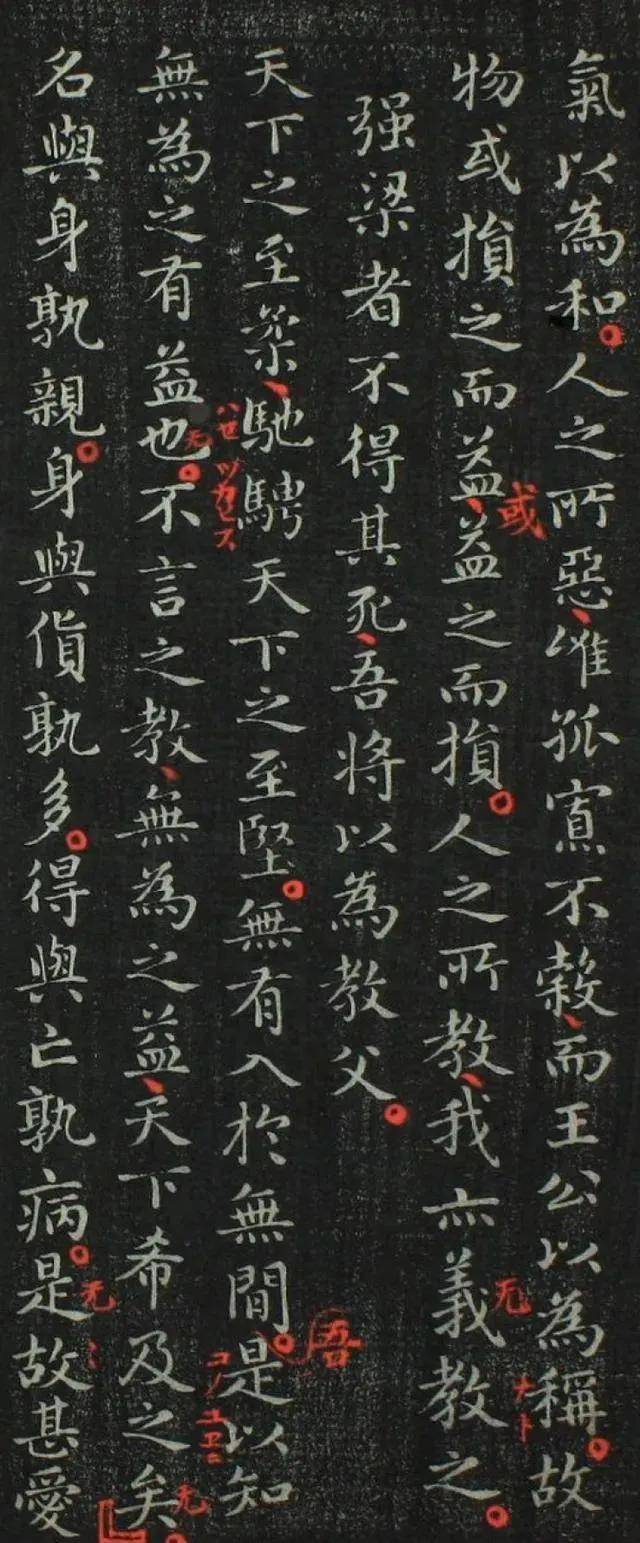 氣以為和。人之所惡、惟孤寡不穀、而王公以為稱。故
物或損之而益、益之而損。人之所教、我亦義教之。
或
无
强梁者不得其死、吾將以為教父。
天下之至柔、馳騁天下之至堅。無有入於無間。是以知
吾
無為之有益也。不言之教、無為之益、天下希及之矣。
无
コノユヱニ
无
名與身孰親。身與貨孰多。得與亡孰病。是故甚愛
无